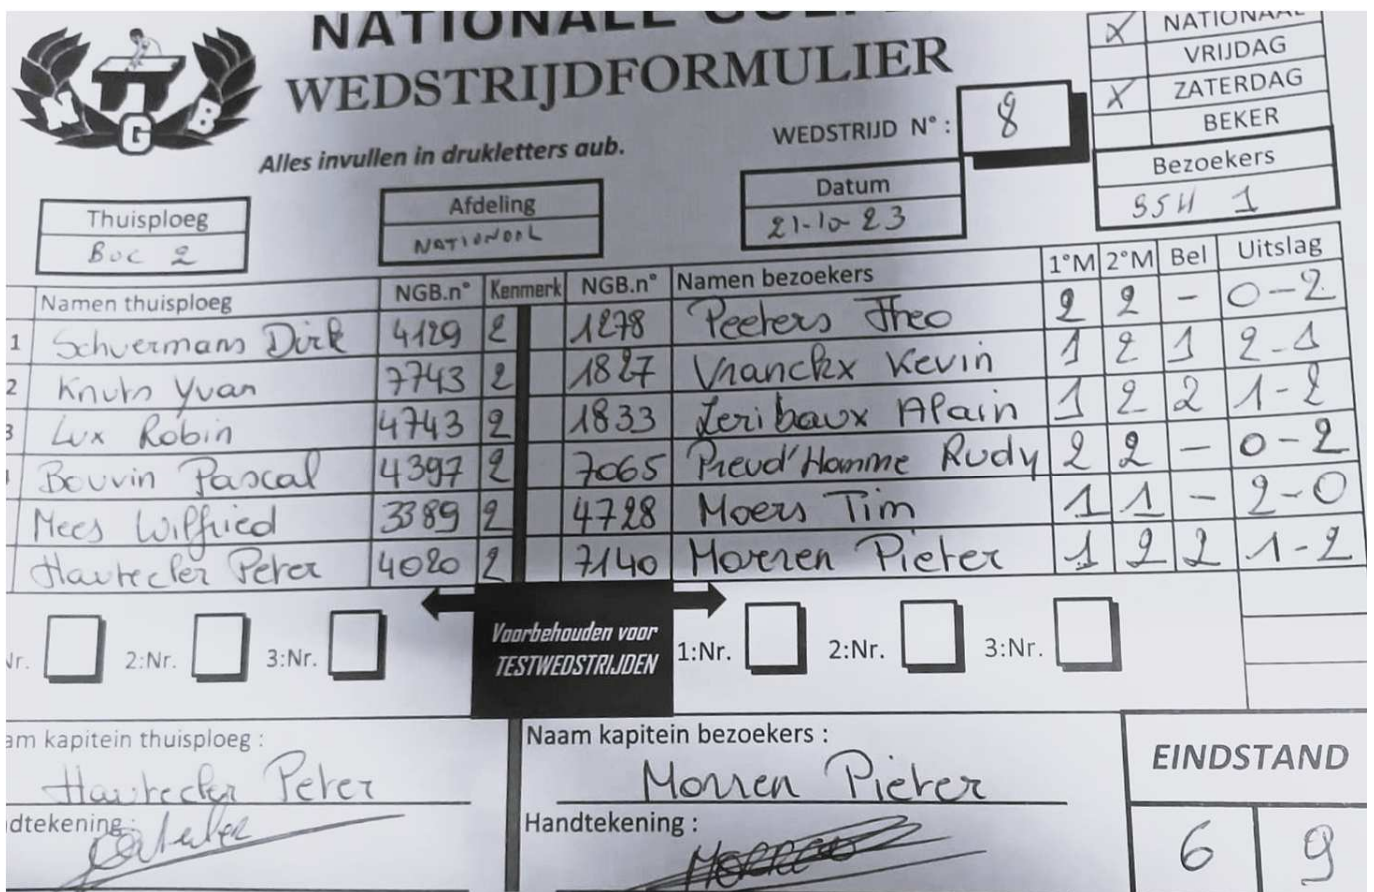 NATIONALE
WEDSTRIJDFORMULIER
Alles invullen in drukletters aub.
N I G B
WEDSTRIJD N° : 8
X NATIONAAL
VRIJDAG
X ZATERDAG
BEKER
Thuisploeg
BOC 2
Afdeling
NATIONAAL
Datum
21-10-23
Bezoekers
SSH 1
Namen thuisploeg NGB.n° Kenmerk NGB.n° Namen bezoekers 1°M 2°M Bel Uitslag
1 Schuermans Dirk 4129 2 1278 Peeters Theo 2 2 - 0-2
2 Knuts Yvan 7743 2 1827 Vranckx Kevin 1 2 1 2-1
3 Lux Robin 4743 2 1833 Leribaux Alain 1 2 2 1-2
Bouvin Pascal 4397 2 7065 Preud'Homme Rudy 2 2 - 0-2
Mees Wilfried 3389 2 4728 Moers Tim 1 1 - 2-0
Hautecler Peter 4020 2 7140 Morren Pieter 1 2 2 1-2
Nr. 2:Nr. 3:Nr. Voorbehouden voor TESTWEDSTRIJDEN 1:Nr. 2:Nr. 3:Nr.
am kapitein thuisploeg :
Hautecler Peter
dtekening :
Naam kapitein bezoekers :
Morren Pieter
Handtekening :
EINDSTAND
6 9